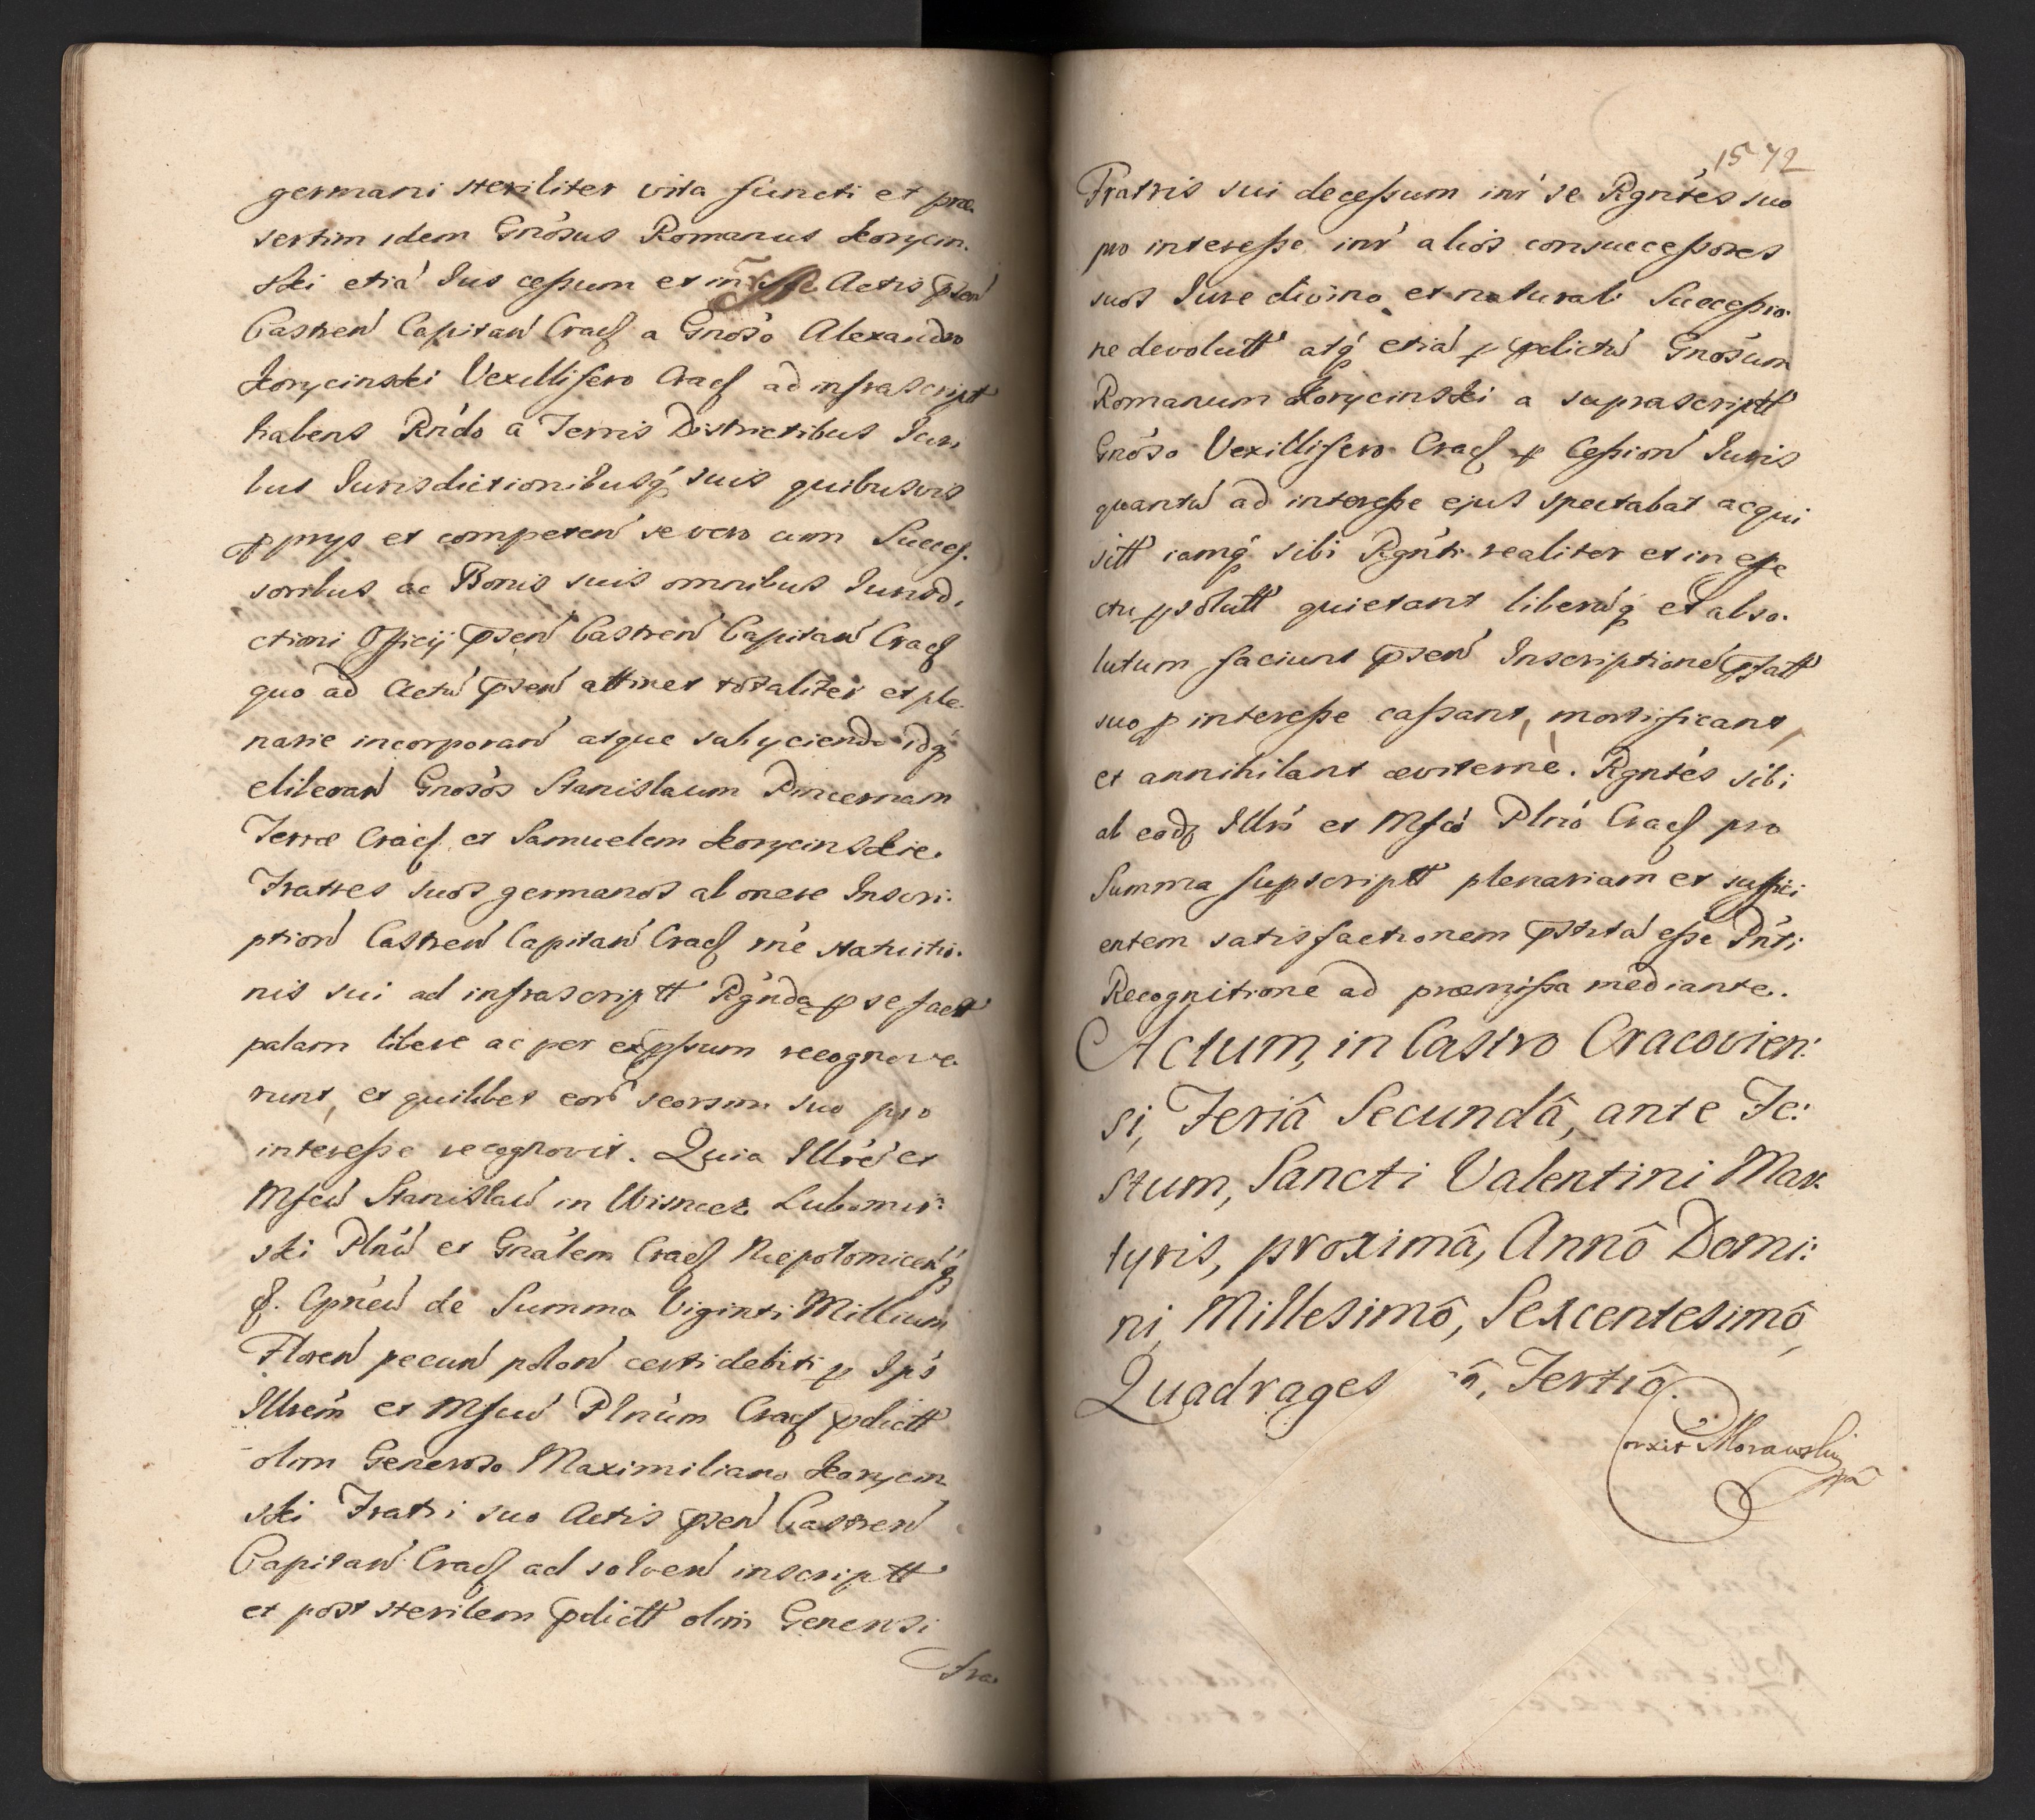 germani steriliter vita functi et præ
sertim idem Gnósus Romanus Korycin.
ski etiá Jus cessum et in Actis psen
Castren Capitan Cracs a Gnóso Alexandro
Korycinski Vexillifero Cracs ad infrascript
habens Rńdo a Terris Districtibus Juri
bus Jurisdictionibusq suis quibusvis
pprys et competen se vero cum Succes.
soribus ac Bonis suis omnibus Jurisd.
ctioni Officij psen Castren Capitan Cracs
quo ad Actu psen attinet totaliter et ple.
narie incorporan atque subyciendo idq
eliberan Gnosos Stanislaum Pincernam
Terræ Cracs et Samuelem Korycinskie.
Fratres suos germanos ab onere Inscri.
ption Castren Capitan Cracs rńe statuitio.
nis sui ad infrascriptt Rgnda p se fact
palam libere ac per expssum recognove.
runt, et quilibet eor seorsim suo pro
interesse recognovit. Quia Illré et
Mfcu Stanislau in Wisnicz Lubomir:
ski Płńu et Gnálem Cracs Niepołomicenq
&. Cpńeu de Summa Viginti Millium
Floren pecun polon certi debiti p Ips
Illrem et Mfcu Plnum Cracs pdictt
olim Generoso Maximiliano Korycin
ski Fratri suo Actis psen Castren
Capitan Cracs ad solven inscriptt
et post sterilem pdictt olim Generosi
Fra.
1572
Fratris sui decessum inr se Rgntes suo
pro interesse inr alios consuccessores
suos Jure divino et naturali Successio.
ne devolutt atq etia p pdictu Gnosum
Romanum Korycinski a suprascriptt
Gnóso Vexillifero Cracs p Cession Juris
quantu ad interesse ejus spectabat acqui
sitt iamq sibi Rgnti realiter et in effe
ctu psolutt quietant liberuq et abso.
lutum faciunt psen Inscriptione pfatt
suo p interesse cassant, mortificant,
et annihilant æviternè. Rgntes sibi
ab eodq Illri et Mfco Plno Cracs pro
Summa supscriptt plenariam et suffici
entem satisfactionem pstita esse Pnti
Recognitione ad præmissa mediante.
Actum, in Castro Cracovien:
si, Feriâ Secundâ, ante Fe:
stum, Sancti Valentini Mar:
tyris, proximâ, Annô Domi:
ni, Millesimô, Sexcentesimô,
Quadrages ô, Tertiô.
Morawski